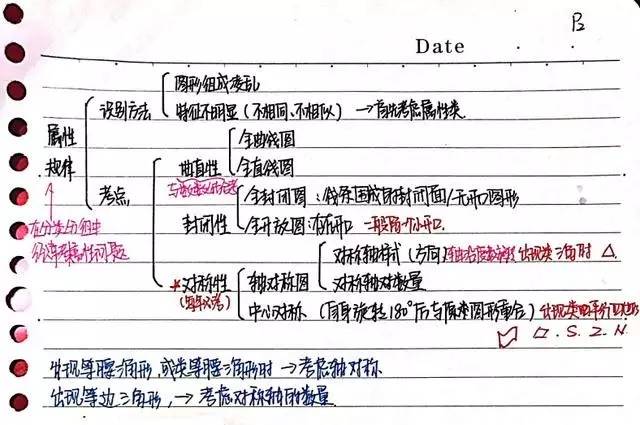 P2
Date
图形组成凌乱
识别方法
特征不明显(不相同、不相似) →首先考虑属性类
属性规律
全曲线图
曲直性
全直线图
考点
全封闭图:线条围成的封闭面/无开口图形
封闭性
全开放图:有开口 一般留一个小开口.
在分类分组中
经常考属性问题
对称轴样式(方向) 出现类三角时 △
轴对称图
*对称性
对称轴数量
(每年必考)
中心对称 (自身旋转180°后与原来图形重合) 出现类平行四边形
▱.S.Z.N.
出现等腰三角形,或类等腰三角形时→考虑轴对称
出现等边三角形,→考虑对称轴的数量